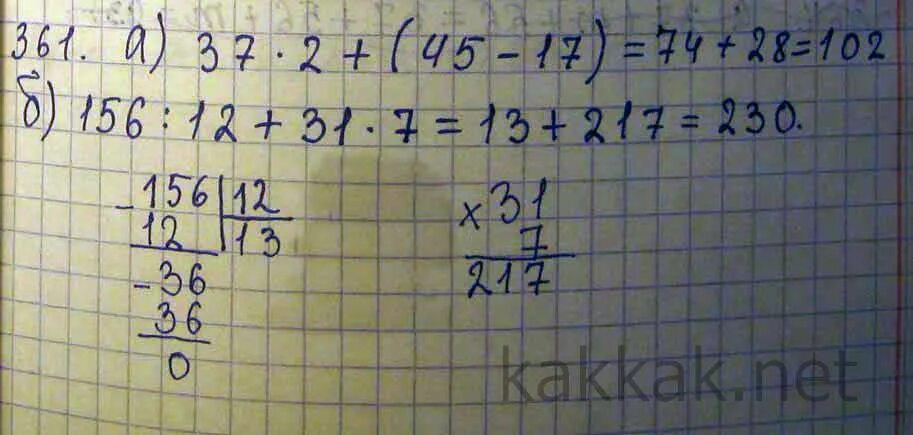 361. а) 37 · 2 + (45 - 17) = 74 + 28 = 102
б) 156 : 12 + 31 · 7 = 13 + 217 = 230.
- 156 | 12
12 | 13
- 36
36
0
x 31
7
217
kakkak.net